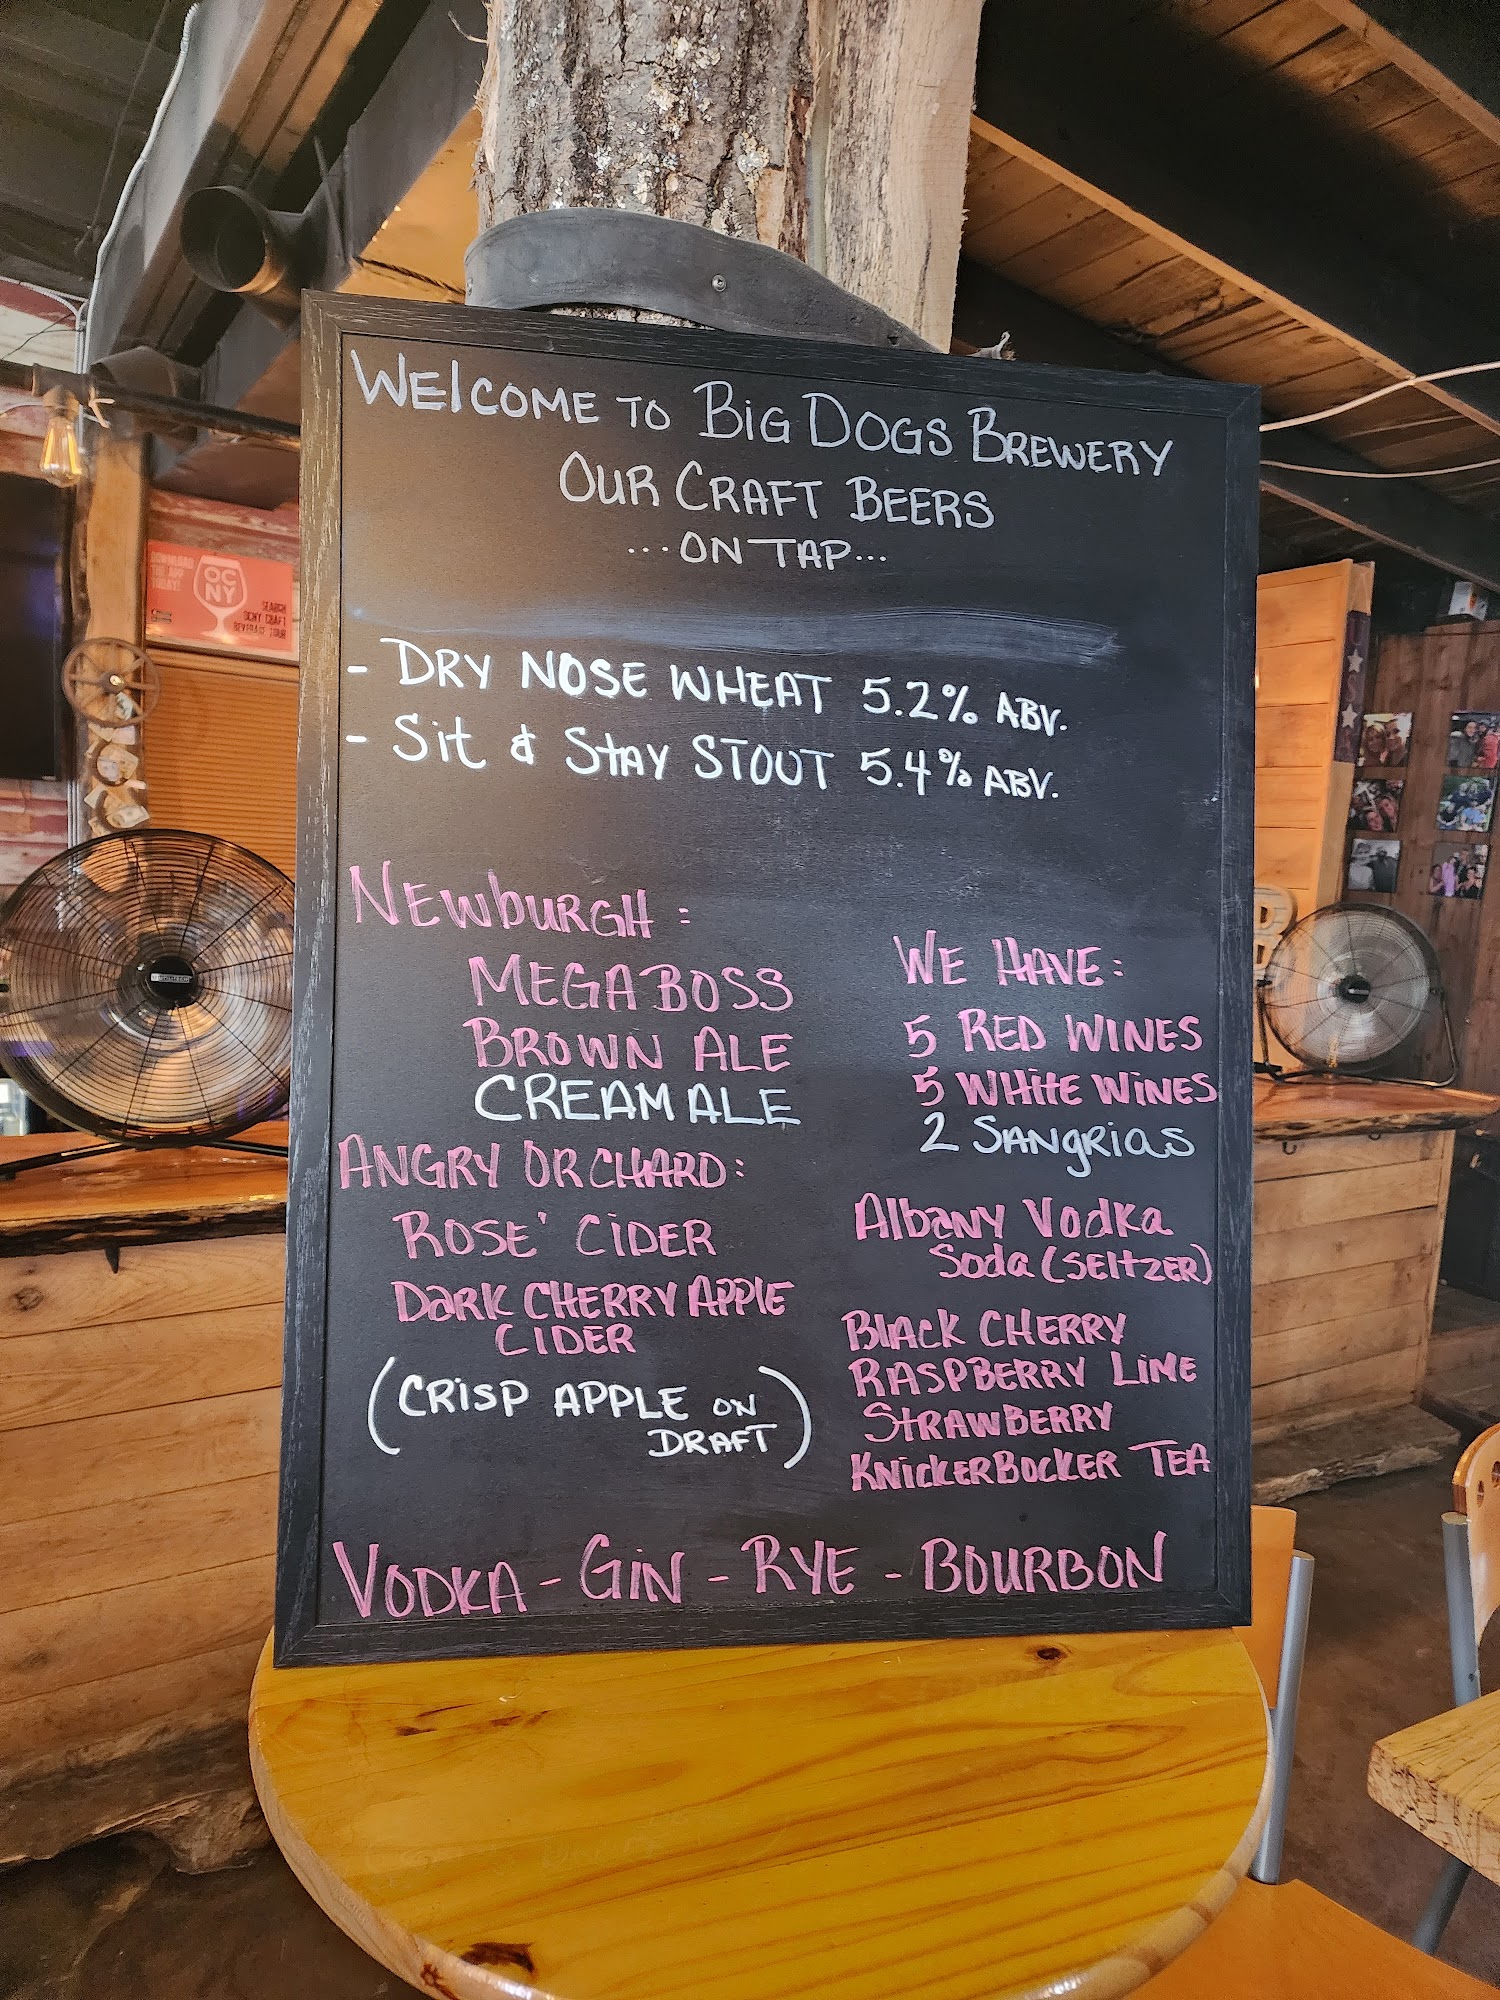 WElCOME TO BiG DOGS BREWERY
OUR CRAFT BEERS
...ON TAP...
- DRY NOSE WHEAT 5.2% ABV.
- Sit & StAy STOUT 5.4% ABV.
NEWbURGH:
MEGABOSS
BROWN ALE
CREAM ALE
ANGRY ORCHARD:
ROSE' CiDER
DaRK CHERRY APPlE
CIDER
(CRiSP APPLE ON
DRAFT)
WE HAVE:
5 RED WINES
5 WHitE WiNES
2 SANGRIAS
AlbaNY VodKa
Soda (SEltZER)
BlACK CHERRY
RASPBERRY LiME
STRAWBERRY
KNiCKERBOCKER TEA
VODKA - GiN - RYE - BOURBON
OC
NY
SEARCH
OCNY CRAFT
BEVERAGE TOUR
USA